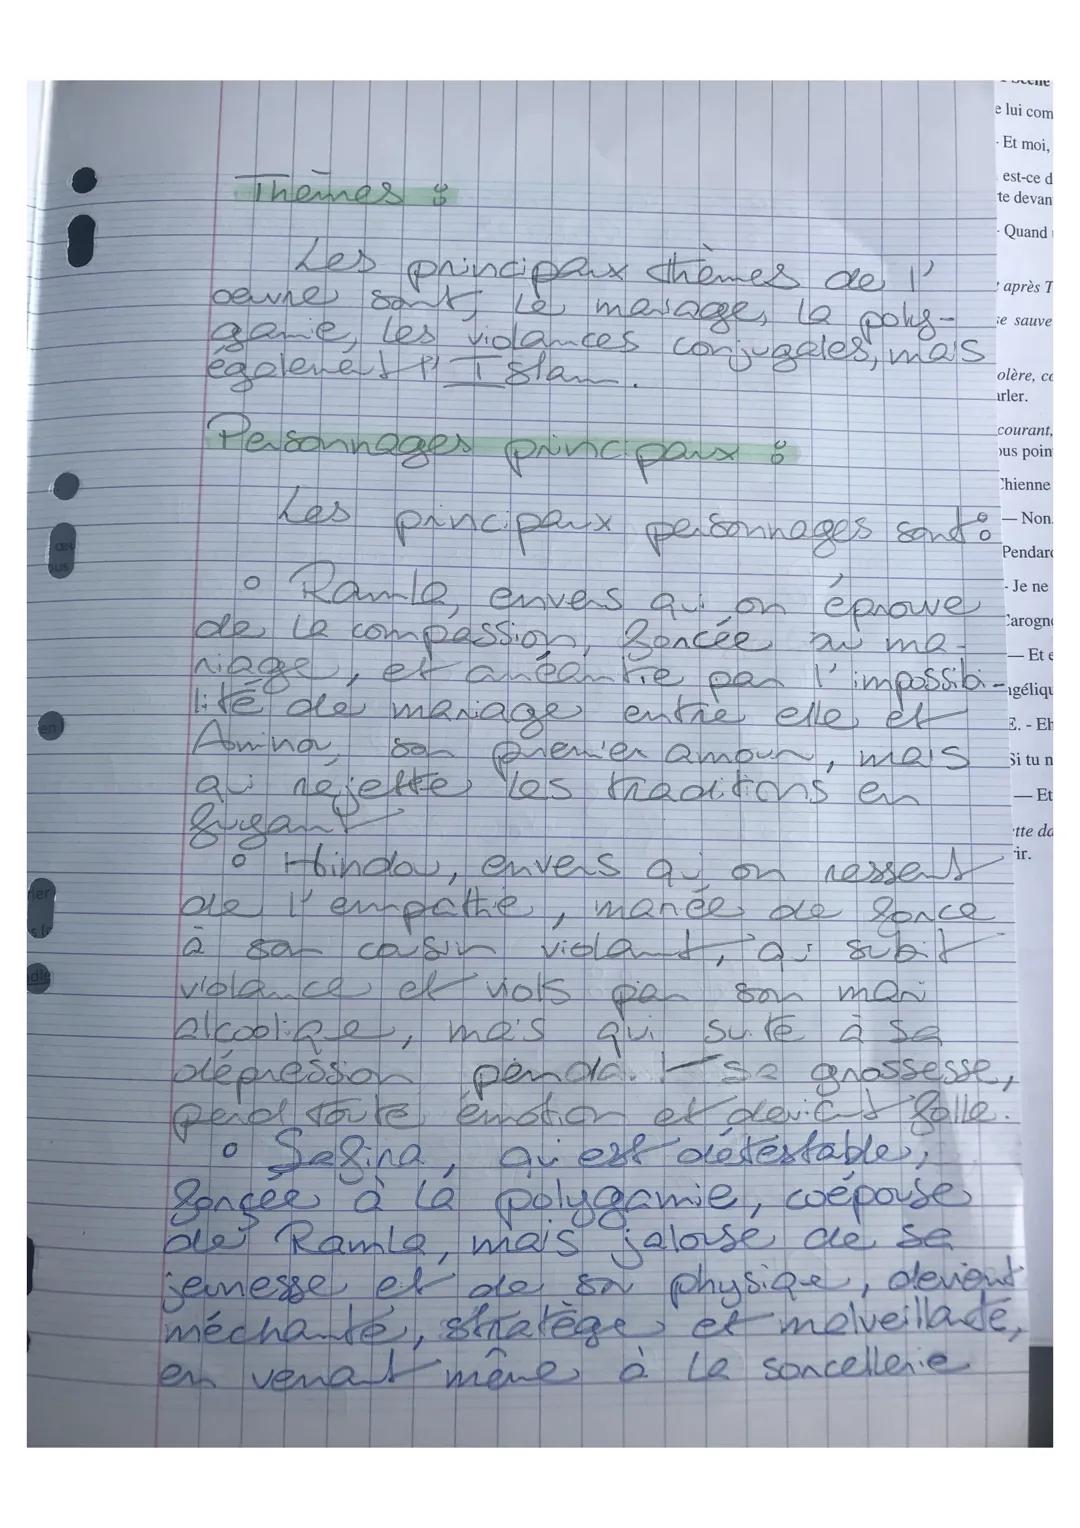 Thèmes :
Les principaux thèmes de l'
oeuvre sont, le mariage, la poly-
gamie, les violances conjugales, mais
également l'Islam.
Personnages principaux :
Les principaux personnages sont :
o Ramla, envers qui on éprouve
de la compassion, forcée au ma-
riage, et anéantie par l'impossibi-
lité de mariage entre elle et
Aminou, son premier amour, mais
qui rejette les traditions en
fuyant
o Hindou, envers qui on ressent
de l'empathie, mariée de force
à son cousin violant, qui subit
violance et viols par son mari
alcoolique, mais qui suite à sa
dépression pendant sa grossesse,
perd toute émotion et devient folle.
o Safira, qui est détestable,
forcée à la polygamie, coépouse
de Ramla, mais jalouse de sa
jeunesse et de son physique, devient
méchante, stratège et malveillante,
en venant même à la sorcellerie
e lui com
- Et moi,
est-ce d
te devan
- Quand
après T
se sauve
olère, co
arler.
courant,
ous poin
Chienne
— Non.
Pendard
- Je ne
Carogne
— Et e
ngéliqu
E. - Eh
Si tu n
— Et
ette da
rir.